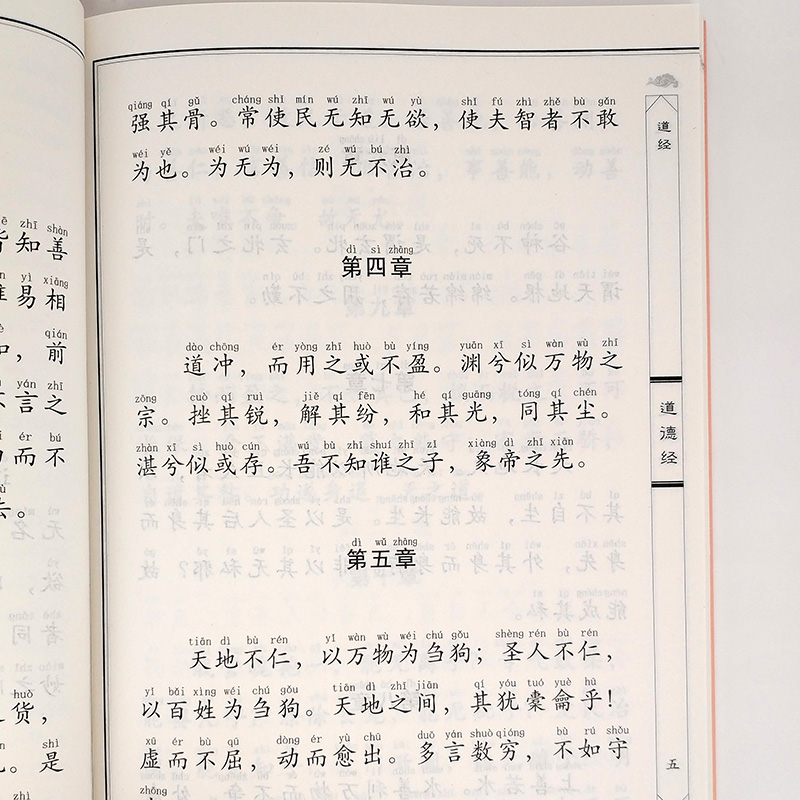 qiáng qí gǔ cháng shǐ mín wú zhī wú yù shǐ fú zhì zhě bù gǎn
强其骨。常使民无知无欲，使夫智者不敢
wéi yě wéi wú wéi zé wú bú zhì
为也。为无为，则无不治。
dì sì zhāng
第四章
dào chōng ér yòng zhī huò bù yíng yuān xī sì wàn wù zhī
道冲，而用之或不盈。渊兮似万物之
zōng cuò qí ruì jiě qí fēn hé qí guāng tóng qí chén
宗。挫其锐，解其纷，和其光，同其尘。
zhàn xī sì huò cún wú bù zhī shuí zhī zǐ xiàng dì zhī xiān
湛兮似或存。吾不知谁之子，象帝之先。
dì wǔ zhāng
第五章
tiān dì bù rén yǐ wàn wù wéi chú gǒu shèng rén bù rén
天地不仁，以万物为刍狗；圣人不仁，
yǐ bǎi xìng wéi chú gǒu tiān dì zhī jiān qí yóu tuó yuè hū
以百姓为刍狗。天地之间，其犹橐龠乎！
xū ér bù qū dòng ér yù chū duō yán shuò qióng bù rú shǒu
虚而不屈，动而愈出。多言数穷，不如守
zhōng
道经
道德经
五
zhī shàn
知善
yì xiāng
易相
qián
，前
yán zhī
言之
ér bú
而不
去。
huò
货，
shì
。是